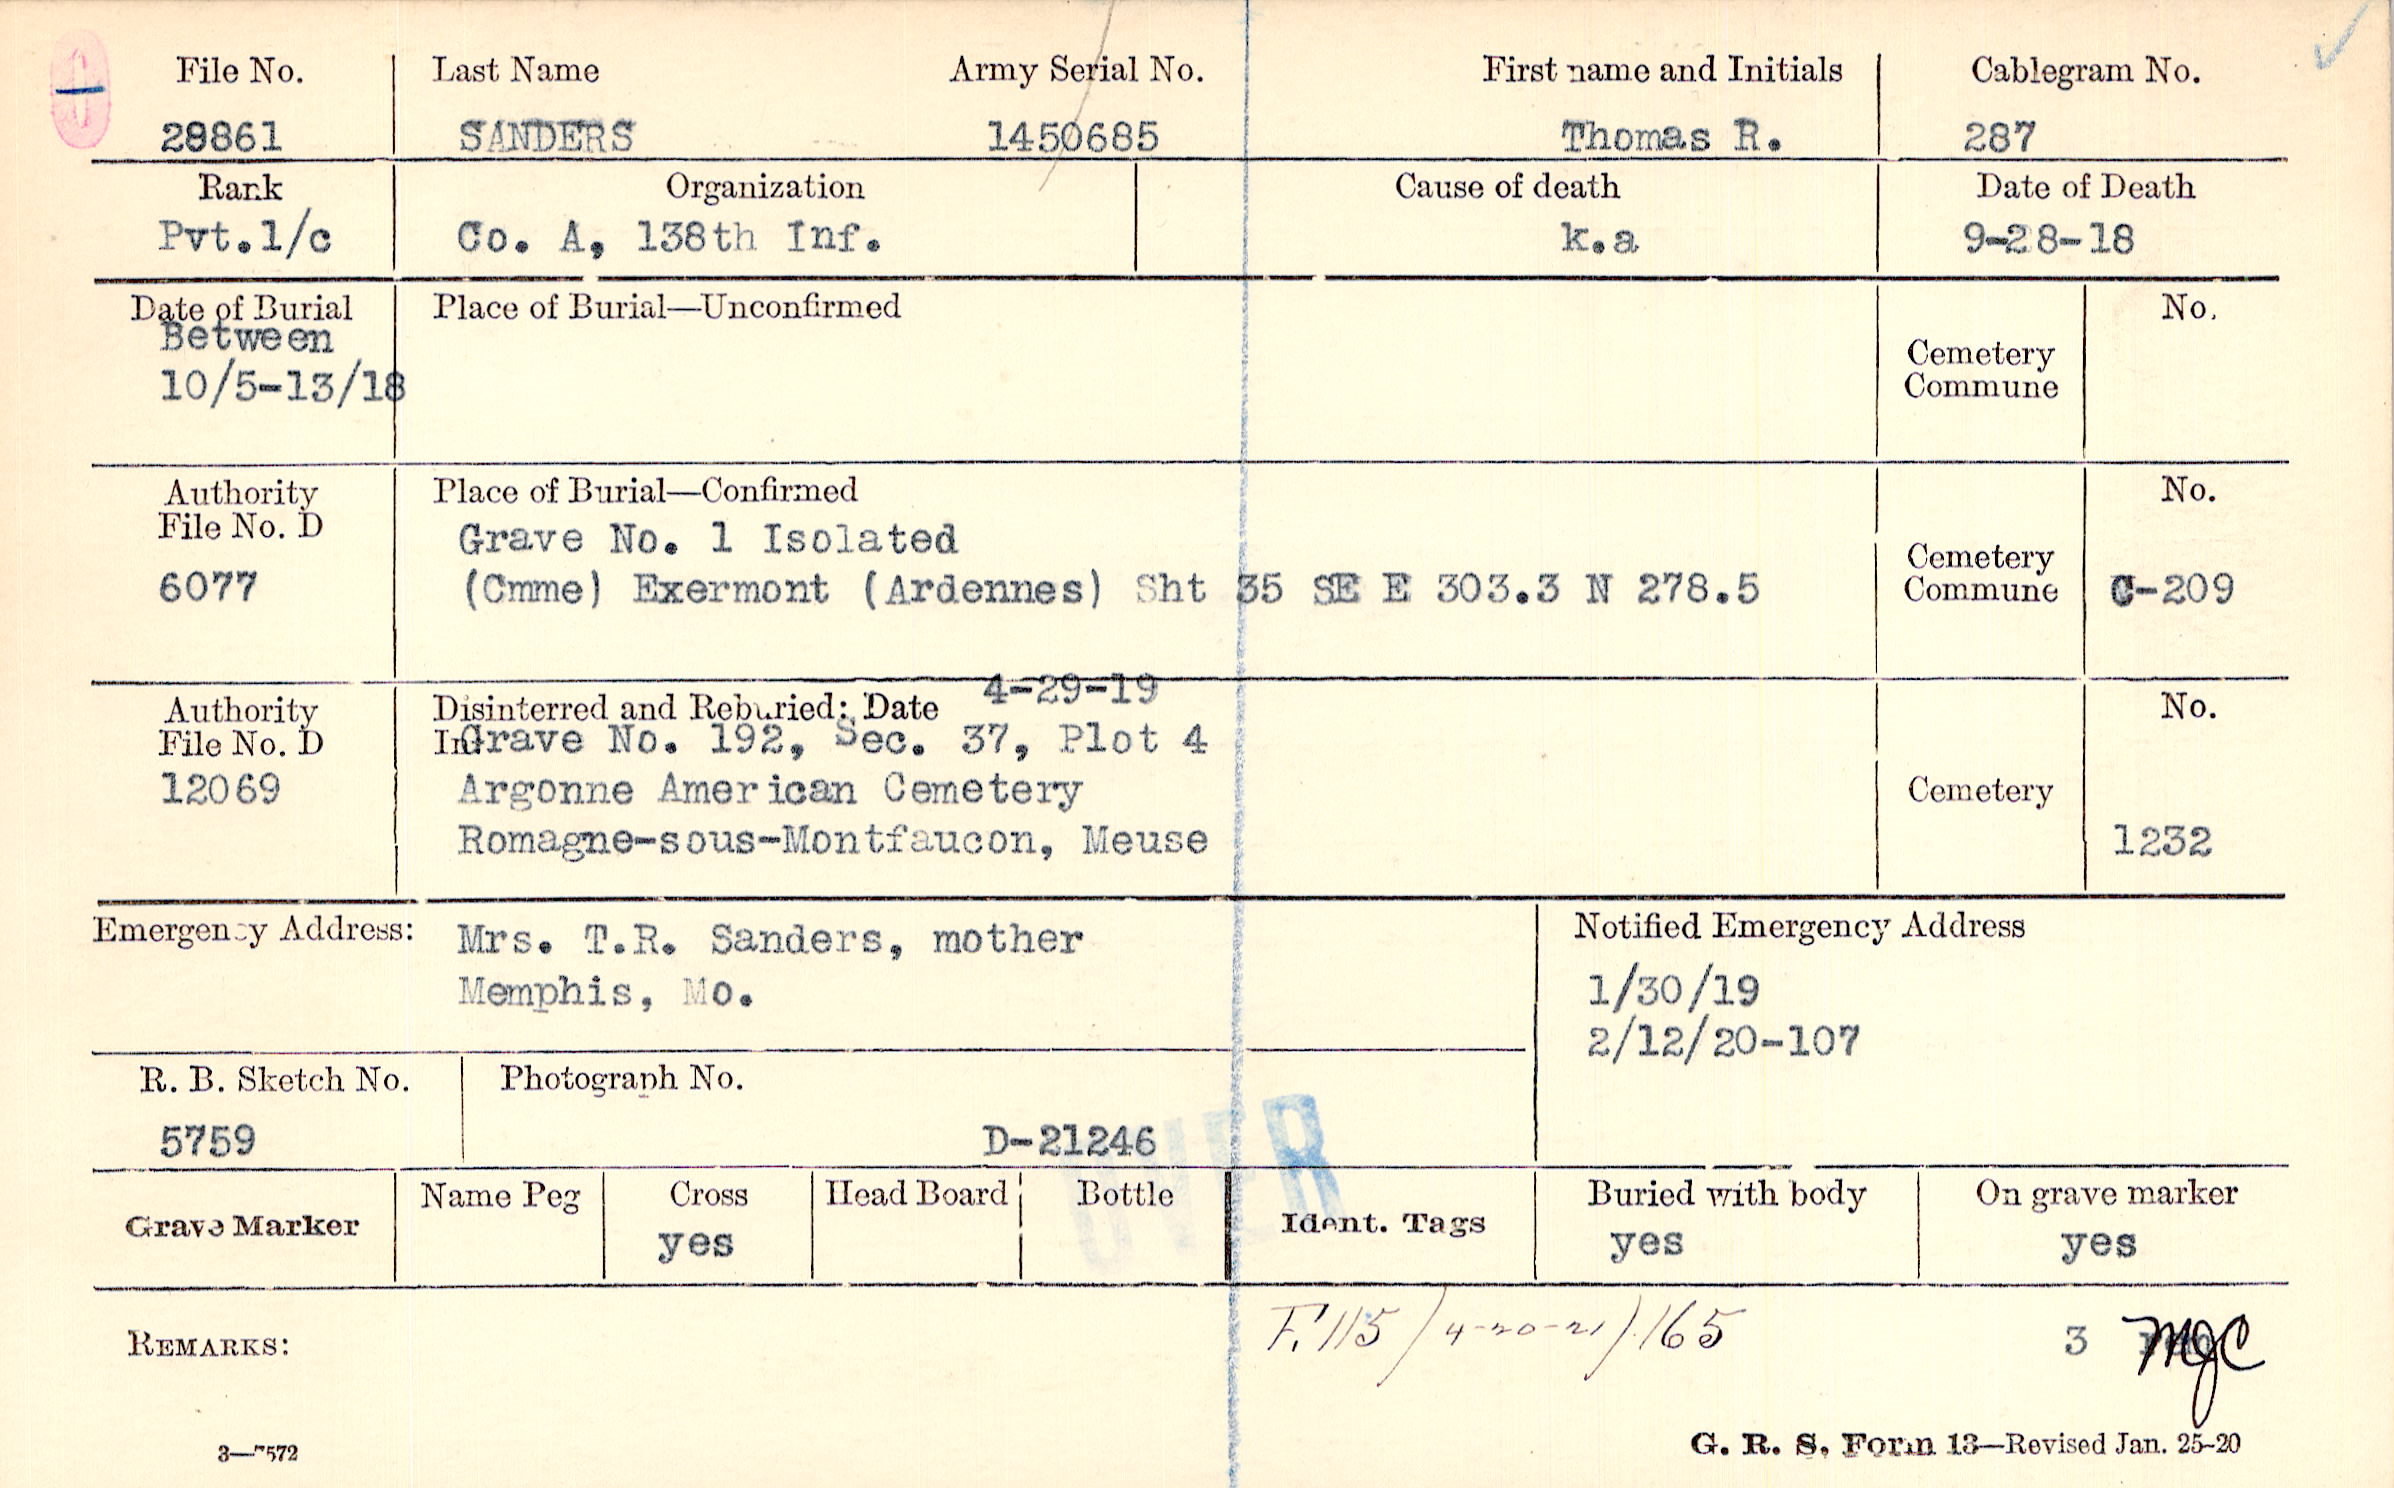 File No. Last Name Army Serial No. First name and Initials Cablegram No.
28861 SANDERS 1450685 Thomas R. 287
Rank Organization Cause of death Date of Death
Pvt.1/c Co. A, 138th Inf. k.a 9-28-18
Date of Burial Place of Burial—Unconfirmed No.
Between
10/5-13/18
Cemetery
Commune
Authority Place of Burial—Confirmed No.
File No. D
Grave No. 1 Isolated
6077 (Cmme) Exermont (Ardennes) Sht 35 SE E 303.3 N 278.5
Cemetery
Commune C-209
Authority Disinterred and Reburied: Date 4-29-19 No.
File No. D In Grave No. 192, Sec. 37, Plot 4
12069 Argonne American Cemetery Cemetery
Romagne-sous-Montfaucon, Meuse 1232
Emergency Address: Mrs. T.R. Sanders, mother Notified Emergency Address
Memphis, Mo. 1/30/19
2/12/20-107
R. B. Sketch No. Photograph No.
5759 D-21246
OVER
Grave Marker Name Peg Cross Head Board Bottle Ident. Tags Buried with body On grave marker
yes yes yes
REMARKS: F.115 / 4-20-21 / .165 3 MJC
3—7572 G. R. S. Form 13—Revised Jan. 25-20